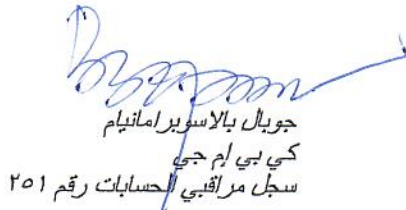 جوبال بالاسوبرامانيام
كي بي إم جي
سجل مراقبي الحسابات رقم ٢٥١